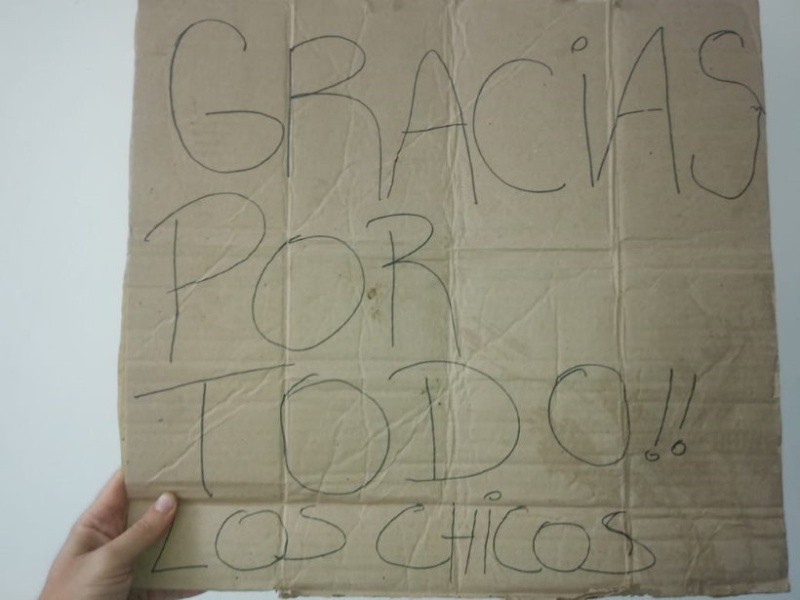 GRACiAS
POR
TODO!!
LOS CHiCOS